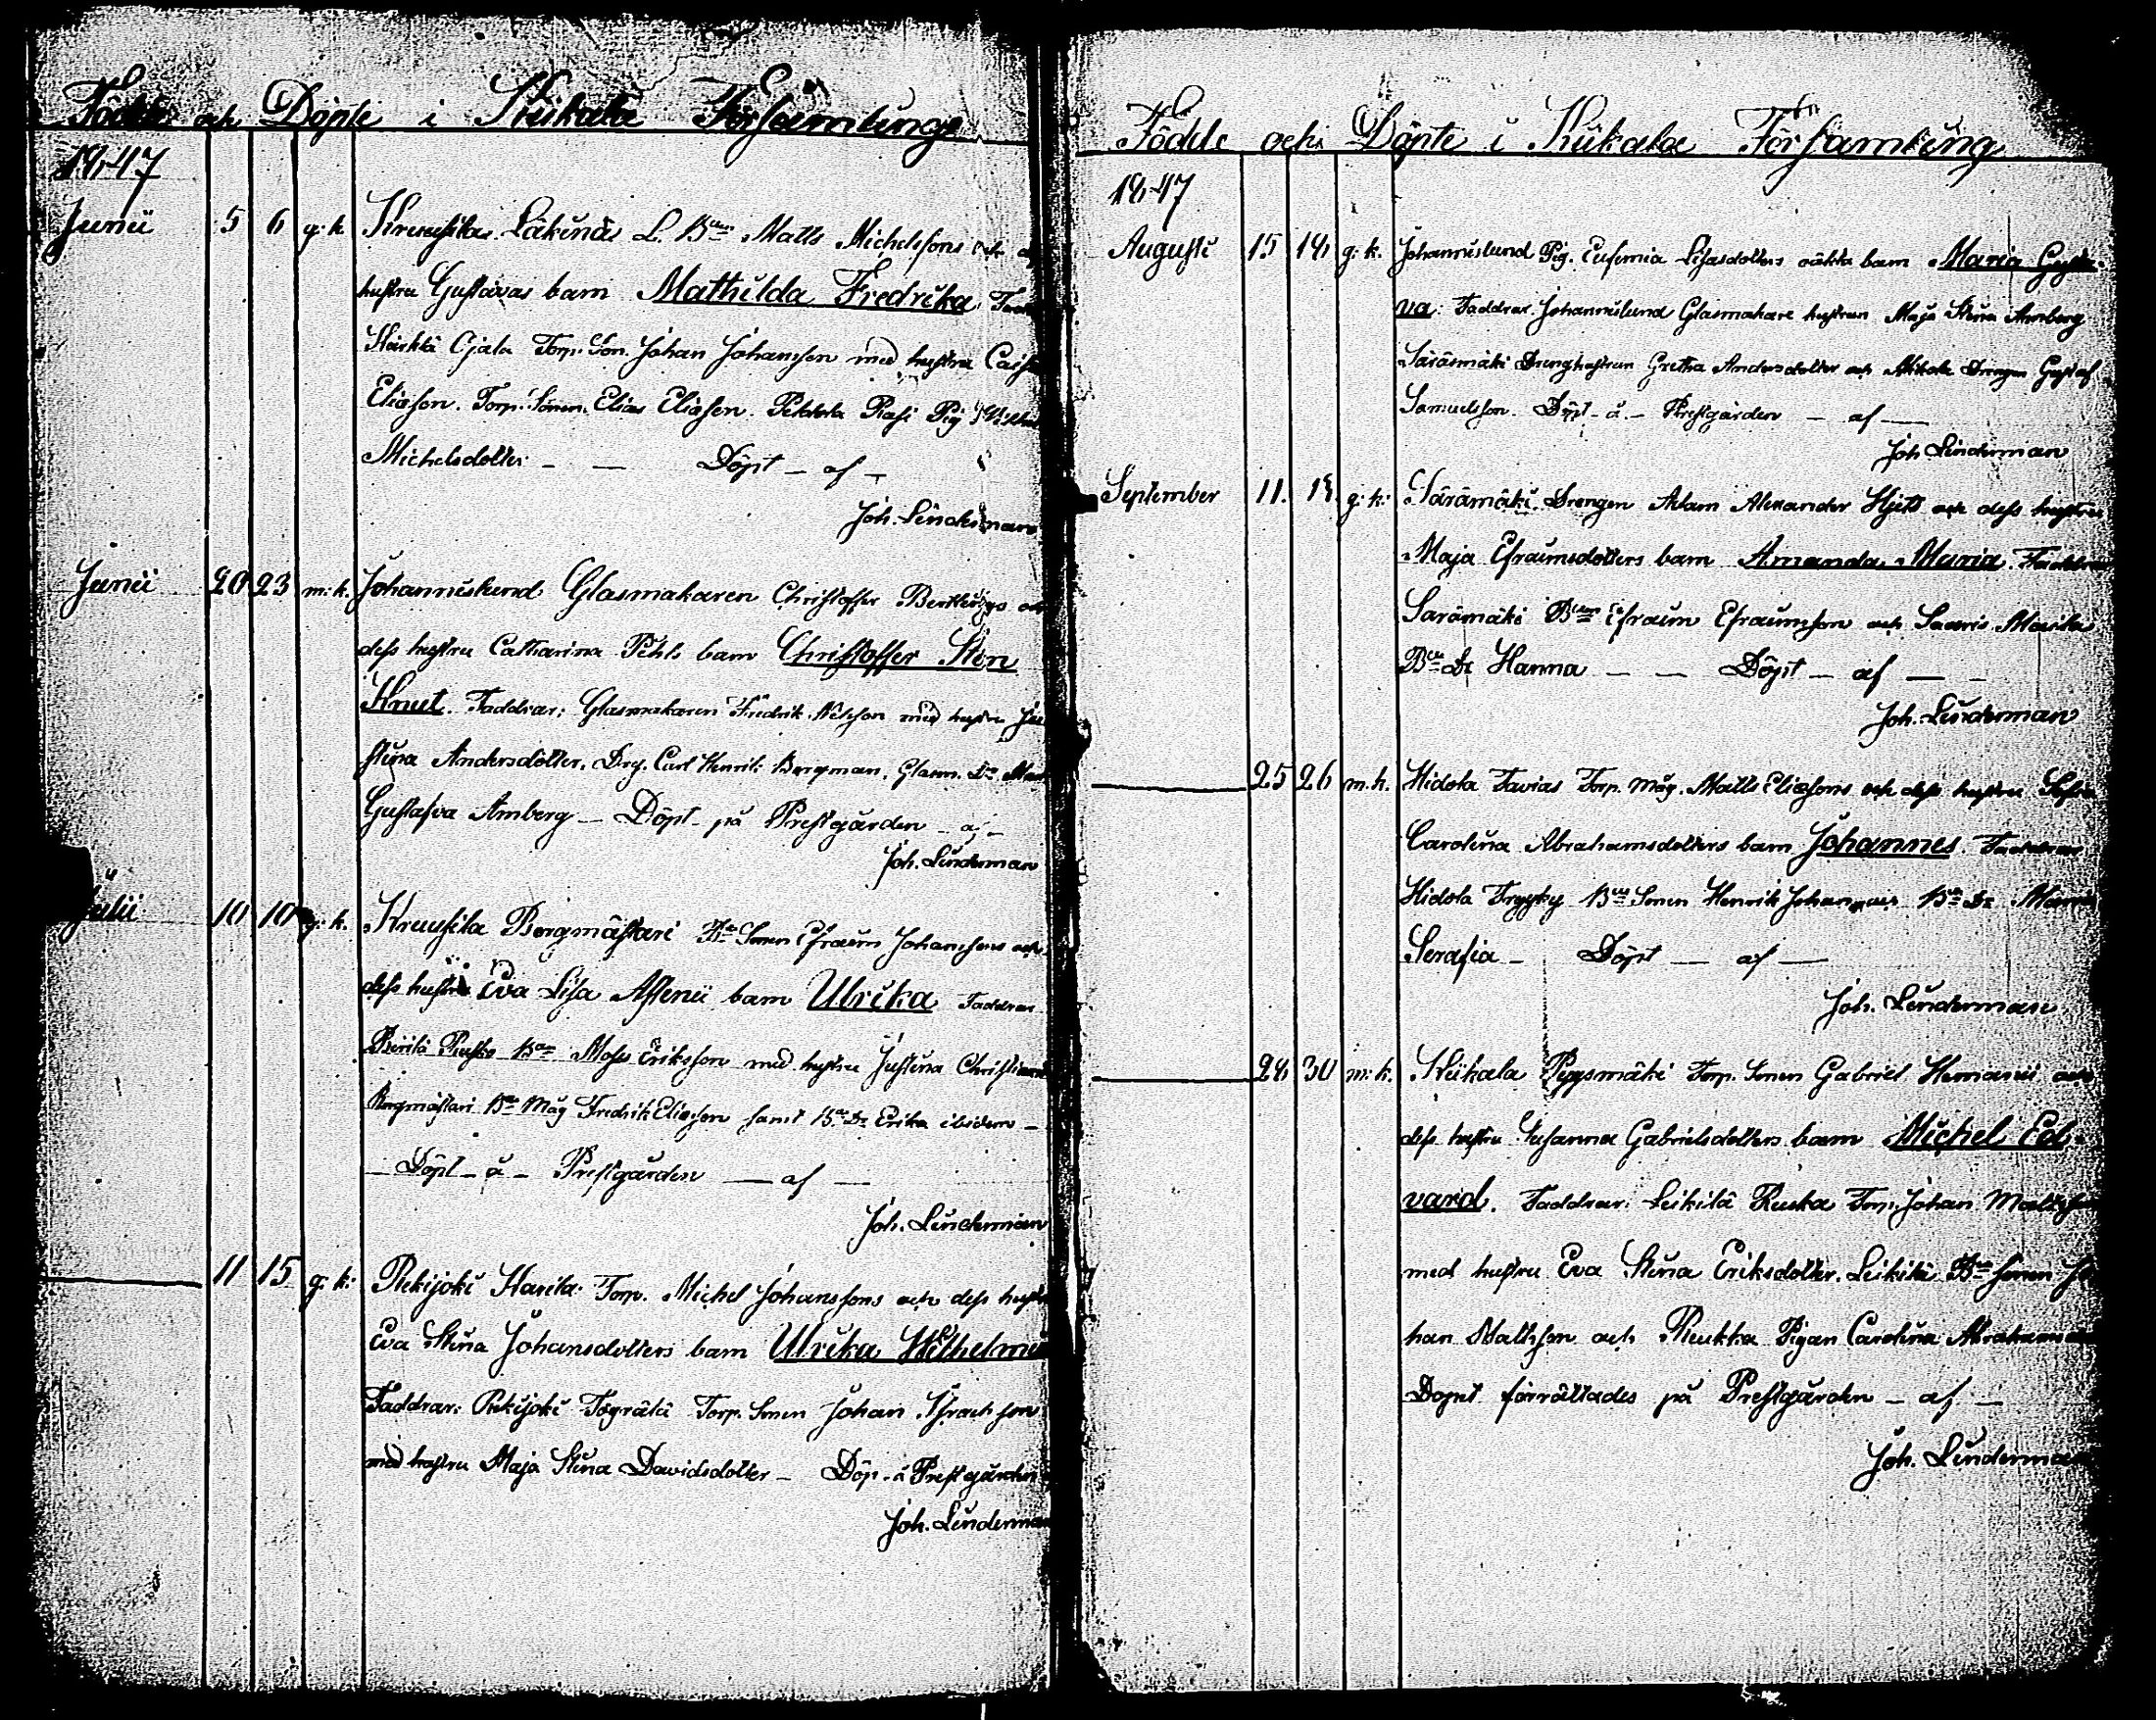 Födde och Döpte i Kiikala Församling
1847
Junii 5 6 g: k. Kruusila Läkinä L. Bdn Matts Michelssons och
hustru Gustavas barn Mathilda Fredrika.
Härklä Ojala Torp. Son. Johan Johansson med hustru
Eliæson. Torp. Sonen. Elias Eliæson. Pig
Michelsdotter — — Döpt — af —
Joh. Linderman
Junii 20 23 m: k. Johannislund Glasmakaren Christoffer
dess hustru Catharina Pihls barn Christoffer Sten
Knut. Faddrar: Glasmakaren Fredrik Nilsson med hustru Ju
stina Andersdotter. Drg. Carl Henrik Bergman, Glasm. Dr
Gustafva Arnberg — Döpt — på Prestgården — af —
Joh. Linderman
Julii 10 10 g: k. Kruusila Borgmästari Bde Sonen Efraim Johanssons och
dess hustru Eva Lisa Asseni barn Ulrika Faddrar
Bdn Moses Eriksson med hustru Justina
Borgmästari Bde Måg Fredrik Eliæsson samt Bde Dr Erika ibidem —
— Döpt — å — Prestgården — af —
Joh. Linderman
11 15 g: k: Rekijoki Harila Torp. Michel Johanssons och dess hustru
Eva Stina Johansdotters barn Ulrika Wilhelmi
Faddrar: Rekijoki Torp. Sonen Johan
med hustru Maja Stina Davidsdotter — Döp. å Prestgården
Joh. Linderman
Födde och Döpte i Kiikala Församling
1847
Augusti 15 18 g: k. Johannislund Pig. Eufemia Lisasdotters oäkta barn Maria
va: Faddrar. Johannislund Glasmakare hustrun Maja Stina Arnberg
Särämäki Dränghustrun Gretha Andersdotter och Drengen Gustaf
Samuelsson. Döpt — å — Prestgården — af —
Joh Linderman
September 11. g: k: Särämäki Drengen Adam Alexander och dess hustru
Maja Efraimsdotters barn Amanda Maria. Faddrar
Särämäki Bden Efraim Efraimsson och
Bde Dr Hanna — — Döpt — af — —
Joh. Linderman
25 26 m. k. Hidola Tavias Torp. Måg. Matts Eliæsons och dess hustru
Carolina Abrahamsdotters barn Johannes. Faddrar
Hidola Bde Sonen Henrik Johannes Bde Dr
Serafia — Döpt — af —
Joh. Linderman
28 30 m: k. Kiikala Torp. Sonen Gabriel och
dess hustru Susanna Gabrielsdotters barn Michel Ed-
vard. Faddrar: Leikilä Torp. Johan
med hustru Eva Stina Eriksdotter. Leikilä Bde Sonen Jo
han Mattsson och Pigan Carolina
Dopet förrättades på Prestgården — af —
Joh. Linderman